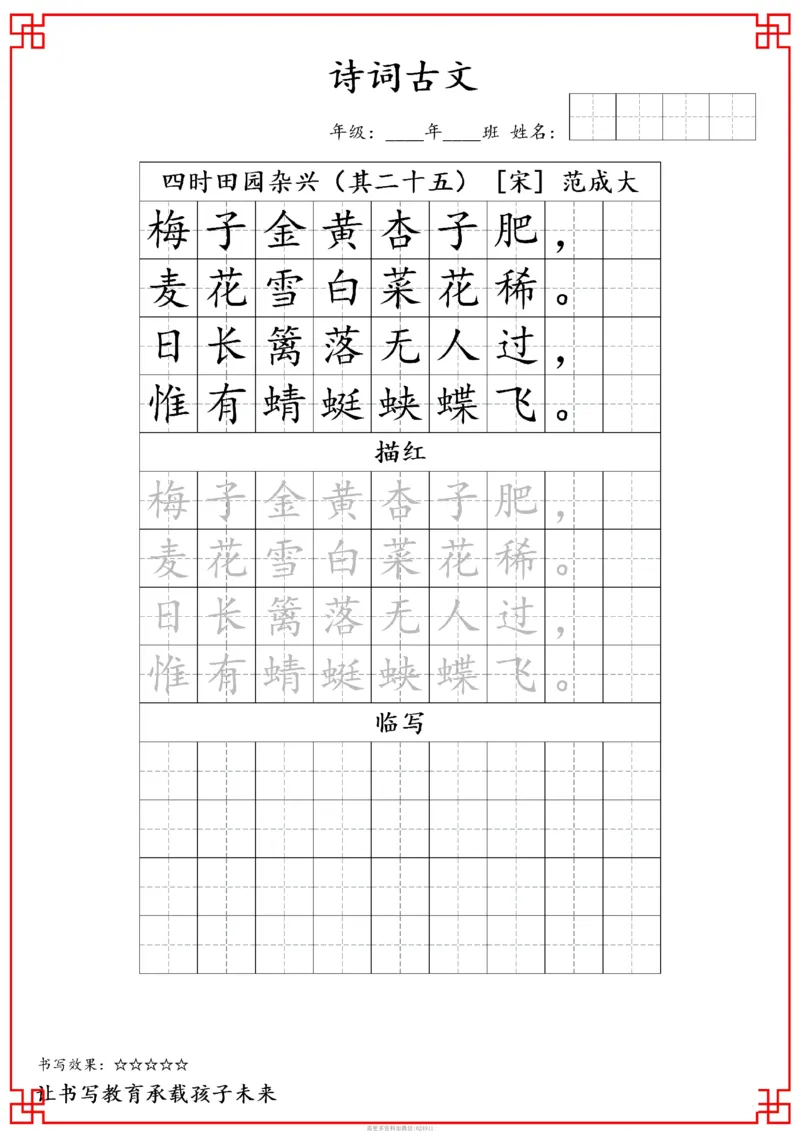 诗词古文
年级：____年____班 姓名：
四时田园杂兴（其二十五）［宋］范成大
梅子金黄杏子肥，
麦花雪白菜花稀。
日长篱落无人过，
惟有蜻蜓蛱蝶飞。
描红
梅子金黄杏子肥，
麦花雪白菜花稀。
日长篱落无人过，
惟有蜻蜓蛱蝶飞。
临写
书写效果：☆☆☆☆☆
让书写教育承载孩子未来